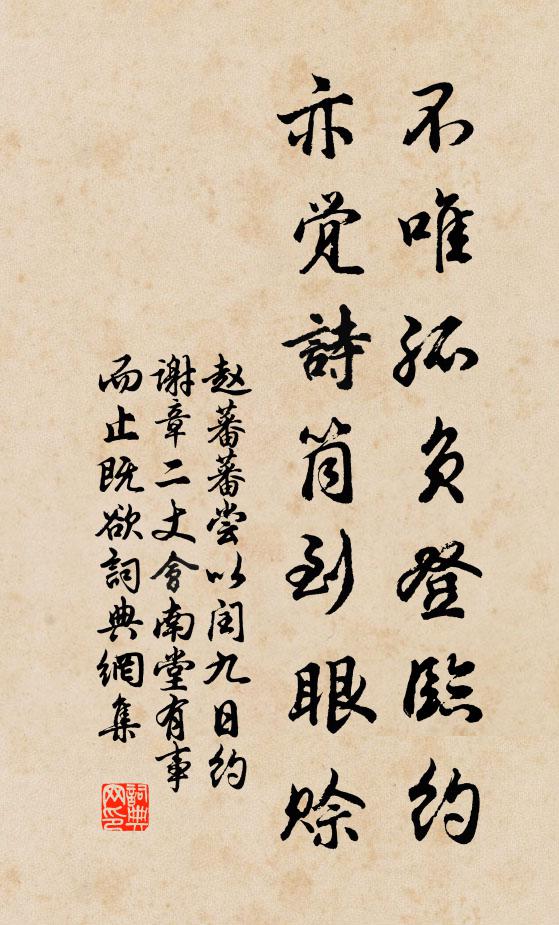 不唯孤负登臨约
亦觉詩筒到眼赊
赵蕃蕃尝以闰九日约
谢章二丈會南堂有事
而止既欲詞典網集
詞典网印